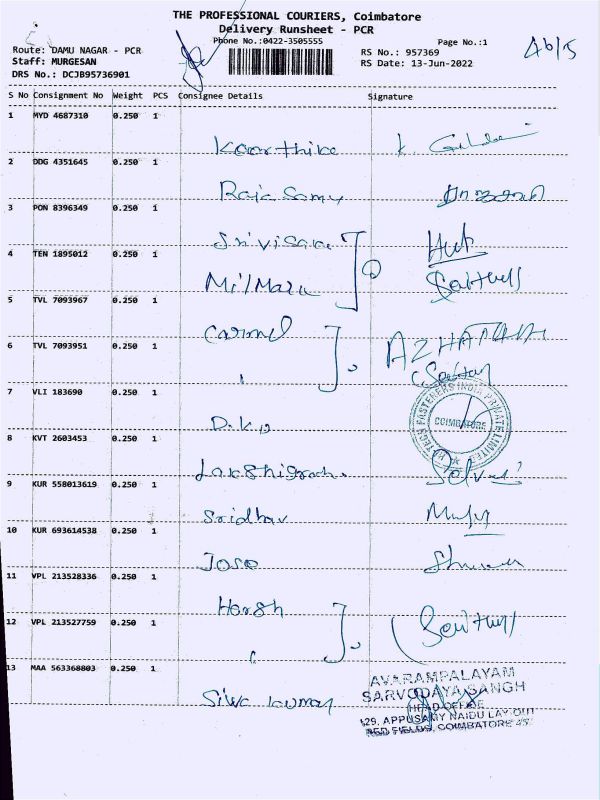 THE PROFESSIONAL COURIERS, Coimbatore
Delivery Runsheet - PCR
Phone No.:0422-3505555
Page No.:1
Route: DAMU NAGAR - PCR
RS No.: 957369
Staff: MURGESAN
RS Date: 13-Jun-2022
DRS No.: DCJB95736901
S No Consignment No Weight PCS Consignee Details Signature
1 MYD 4687310 0.250 1
Karthika
2 DDG 4351645 0.250 1
Raja Samy
3 PON 8396349 0.250 1
4 TEN 1895012 0.250 1
5 TVL 7093967 0.250 1
Carmel
6 TVL 7093951 0.250 1
7 VLI 183690 0.250 1
COIMBATORE
8 KVT 2603453 0.250 1
9 KUR 558013619 0.250 1
Sridhar
10 KUR 693614538 0.250 1
11 VPL 213528336 0.250 1
Harsh
12 VPL 213527759 0.250 1
13 MAA 563368803 0.250 1
Siva kumar
AVARAMPALAYAM
SARVODAYA SANGH
HEAD OFFICE
129, APPUSAMY NAIDU LAY-OUT
RED FIELDS, COIMBATORE